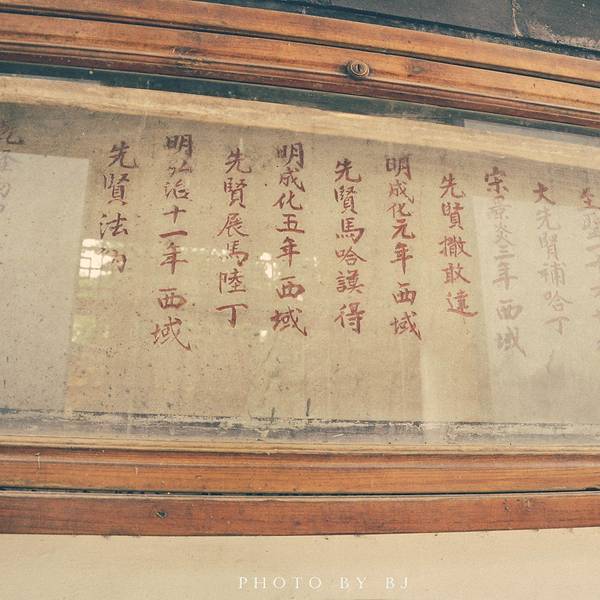 至聖一十六世
大先賢補哈丁
宋景炎三年西域
先賢撒敢達
明成化元年西域
先賢馬哈謨得
明成化五年西域
先賢展馬陸丁
明弘治十一年西域
先賢法納
PHOTO BY BJ